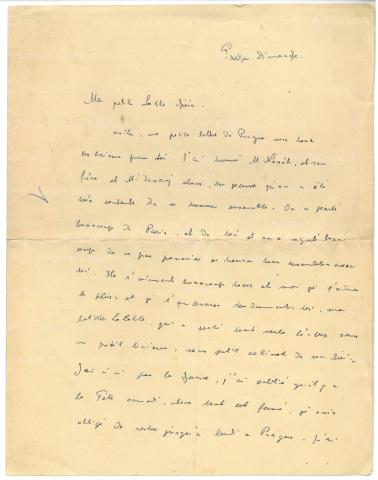 Praha Dimanche.
Ma petite
voilà, une petite lettre de Prague avec tout
J'ai trouvé M
frère et M alors, tu penses qu'on a été
très contents de se trouver ensemble. On a parlé
beaucoup de Paris, et de toi et on a regretté beau-
coup de ne pas pouvoir se trouver tous ensemble avec
toi. Ils t'aiment beaucoup tous et moi je t'aime
le plus, et je t'embrasse toi, ma
petite qui a resté toute seule là-bas sans
un petit baiser, sans petit
J'ai pas la j'ai oublié qu'il y a
la Fête samedi, alors tout est fermé, je suis
obligé de rester jusqu'à lundi a Prague. J'ai